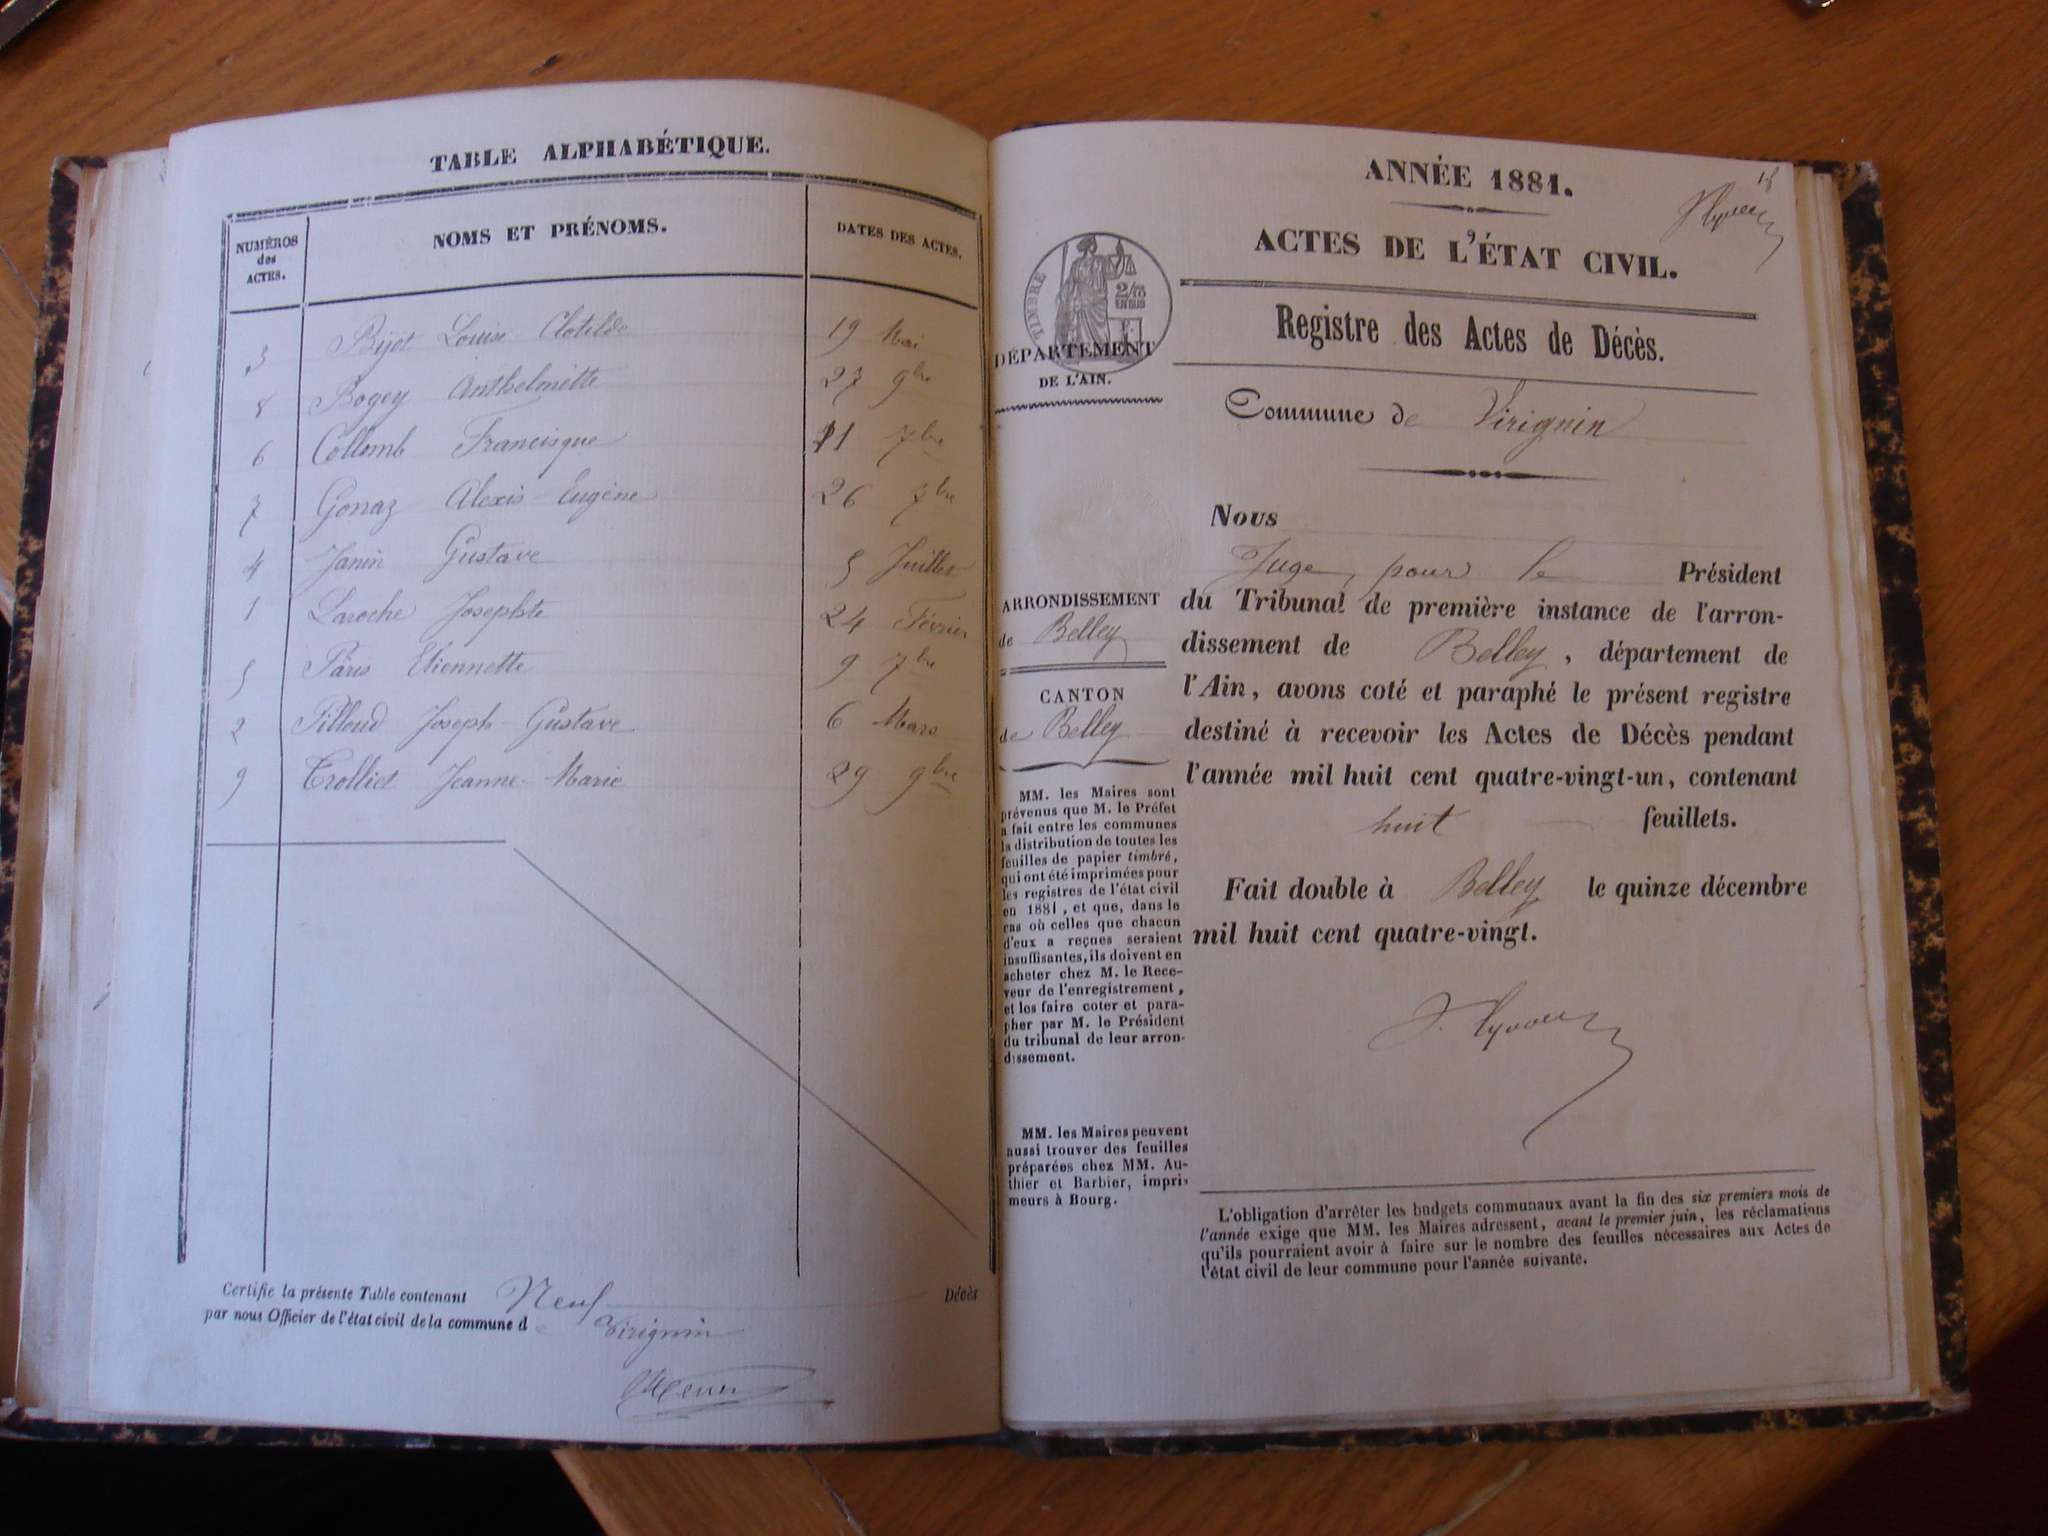 TABLE ALPHABÉTIQUE.
NUMÉROS
des
ACTES.
NOMS ET PRÉNOMS.
DATES DES ACTES.
3 Bijot Louise Clotilde 19 Mai
8 Bogey Anthelmette 27 9bre
6 Collomb Francisque 11 7bre
7 Gonaz Alexis-Eugène 26 7bre
4 Janin Gustave 5 Juillet
1 Laroche Josephte 24 Février
5 Pâris Etiennette 9 7bre
2 Pilloud Joseph-Gustave 6 Mars
9 Trolliet Jeanne-Marie 29 9bre
Certifie la présente Table contenant Neuf Décès
par nous Officier de l'état civil de la commune de Virignin
ANNÉE 1881.
18
ACTES DE L'ÉTAT CIVIL.
TIMBRE
2/10
EN SUS
Registre des Actes de Décès.
DÉPARTEMENT
DE L'AIN.
Commune de Virignin
Nous
Juge, pour le Président
du Tribunal de première instance de l'arron-
dissement de Belley, département de
l'Ain, avons coté et paraphé le présent registre
destiné à recevoir les Actes de Décès pendant
l'année mil huit cent quatre-vingt-un, contenant
huit feuillets.
Fait double à Belley le quinze décembre
mil huit cent quatre-vingt.
ARRONDISSEMENT
de Belley
CANTON
de Belley
MM. les Maires sont
prévenus que M. le Préfet
a fait entre les communes
la distribution de toutes les
feuilles de papier timbré,
qui ont été imprimées pour
les registres de l'état civil
en 1881, et que, dans le
cas où celles que chacun
d'eux a reçues seraient
insuffisantes, ils doivent en
acheter chez M. le Rece-
veur de l'enregistrement,
et les faire coter et para-
pher par M. le Président
du tribunal de leur arron-
dissement.
MM. les Maires peuvent
aussi trouver des feuilles
préparées chez MM. Au-
thier et Barbier, impri-
meurs à Bourg.
L'obligation d'arrêter les budgets communaux avant la fin des six premiers mois de
l'année exige que MM. les Maires adressent, avant le premier juin, les réclamations
qu'ils pourraient avoir à faire sur le nombre des feuilles nécessaires aux Actes de
l'état civil de leur commune pour l'année suivante.